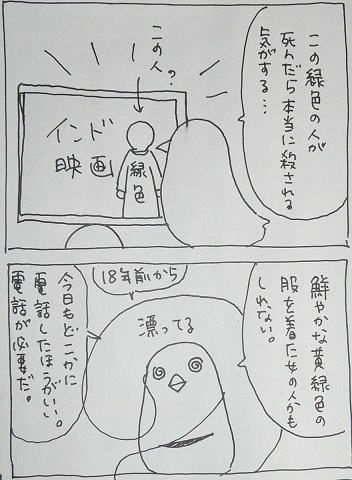 この緑色の人が
死んだら本当に殺される
気がする…
この人?
インド
映画
緑色
鮮やかな黄緑色の
服を着た女の人かも
しれない。
18年前から
漂ってる
今日もどこかに
電話したほうがいい。
電話が必要だ。